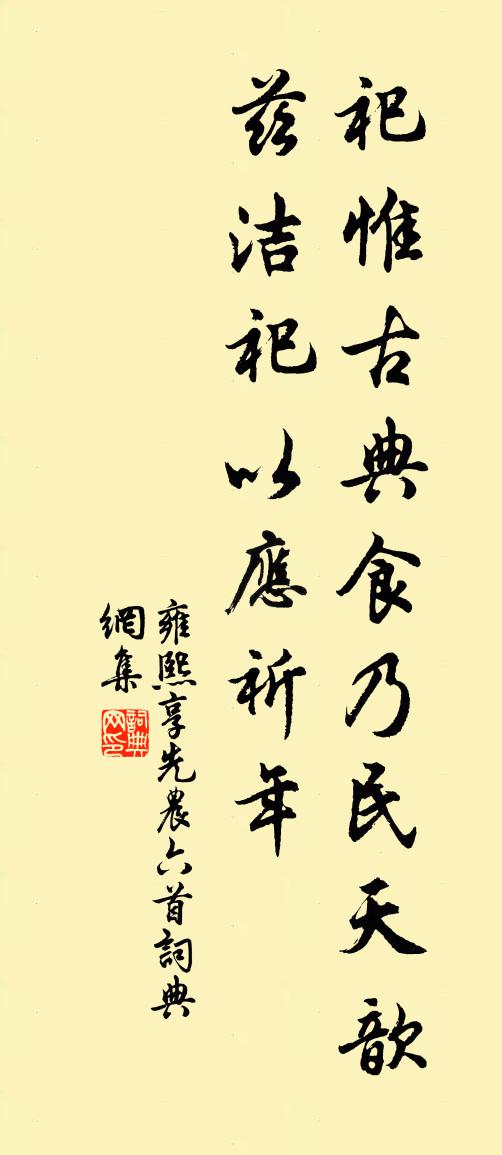 祀惟古典食乃民天歆
茲洁祀以應祈年
雍熙享先農六首詞典
網集
詞典
网印